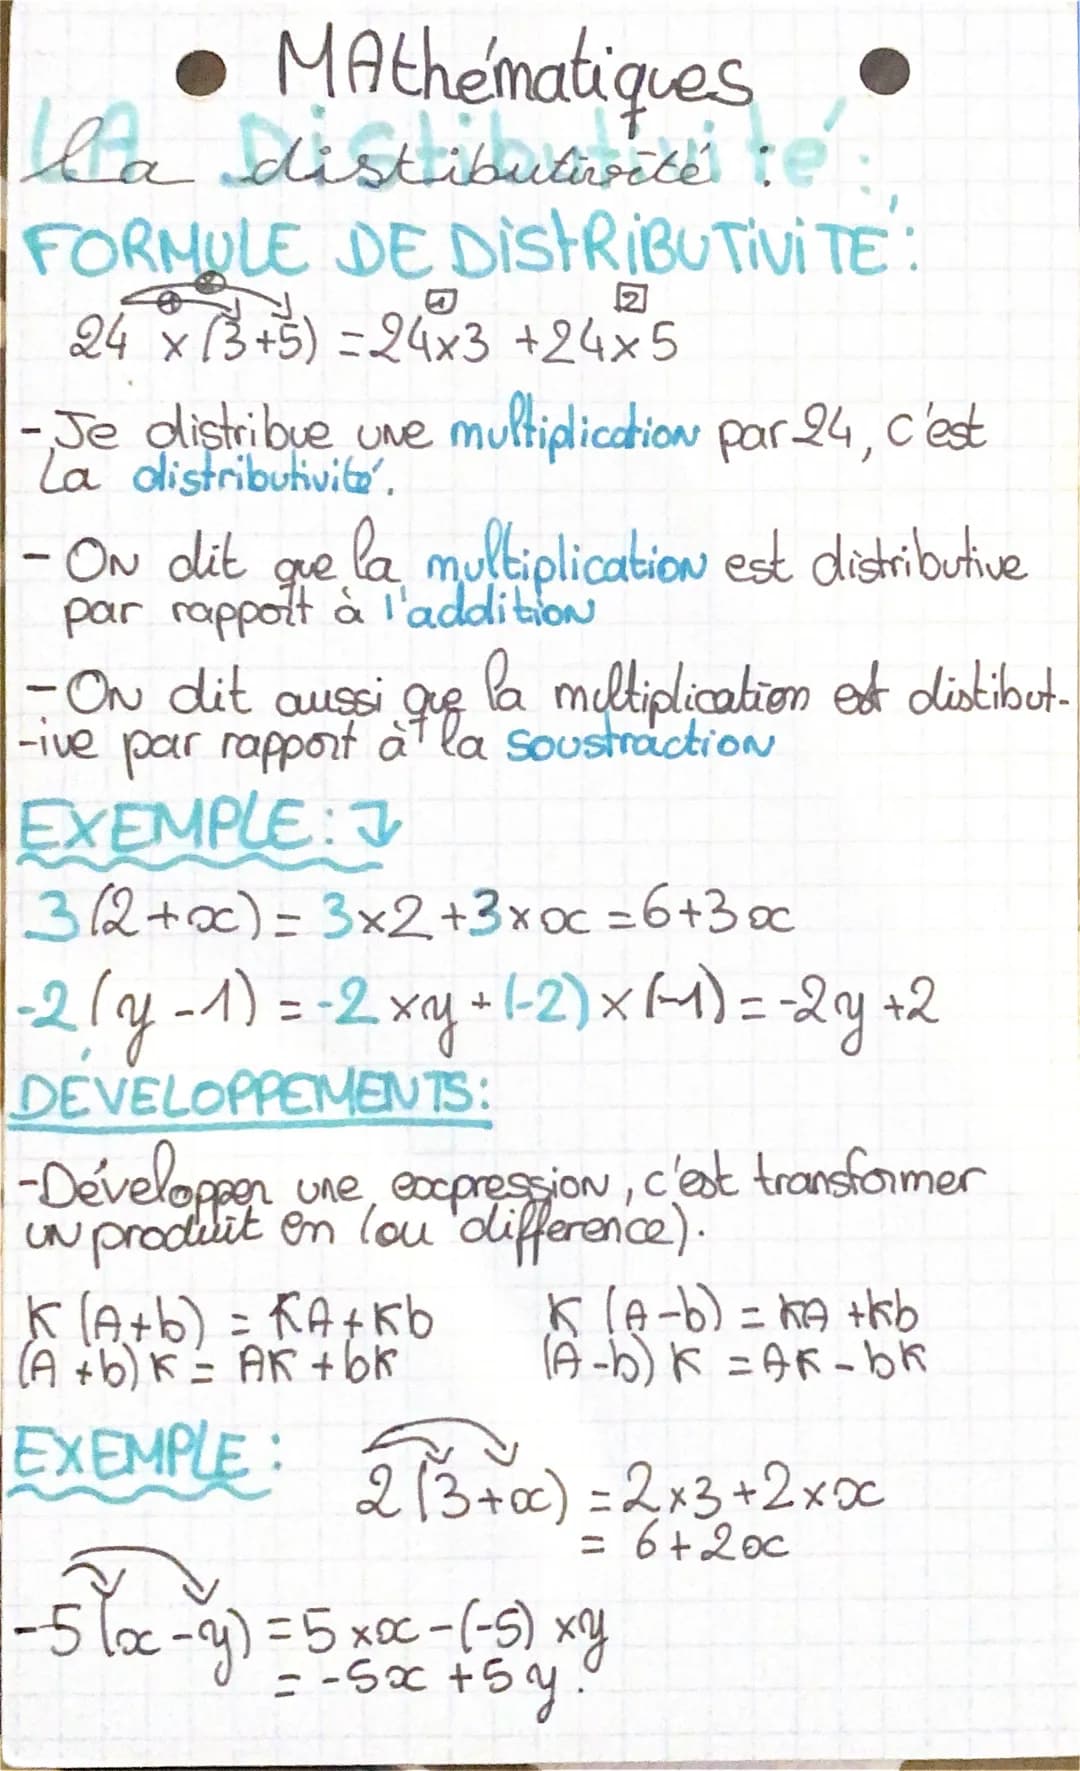 MAthématiques
LA Distibutivité :
La distibutivité :
FORMULE DE DiStRiBUTiViTÉ :
24 x (3+5) = 24x3 + 24x5
1 2
- Je distribue une multiplication par 24, c'est
La distributivité.
- ON dit que la multiplication est distributive
par rapport à l'addition
- ON dit aussi que la multiplication est distibut-
-ive par rapport à la soustraction
EXEMPLE : ↓
3(2+x) = 3x2 + 3xx = 6+3x
-2(y-1) = -2 xy + (-2) x (-1) = -2y +2
DÉVELOPPEMENTS :
- Développer une expression, c'est transformer
un produit en (ou difference).
K (A+b) = KA+Kb
(A+b) K = AK + bK
K (A-b) = KA +Kb
(A-b) K = AK - bK
EXEMPLE :
2(3+x) = 2x3+2xx
= 6+2x
-5(x-y) = 5 xx -(-5) xy
= -5x +5y.